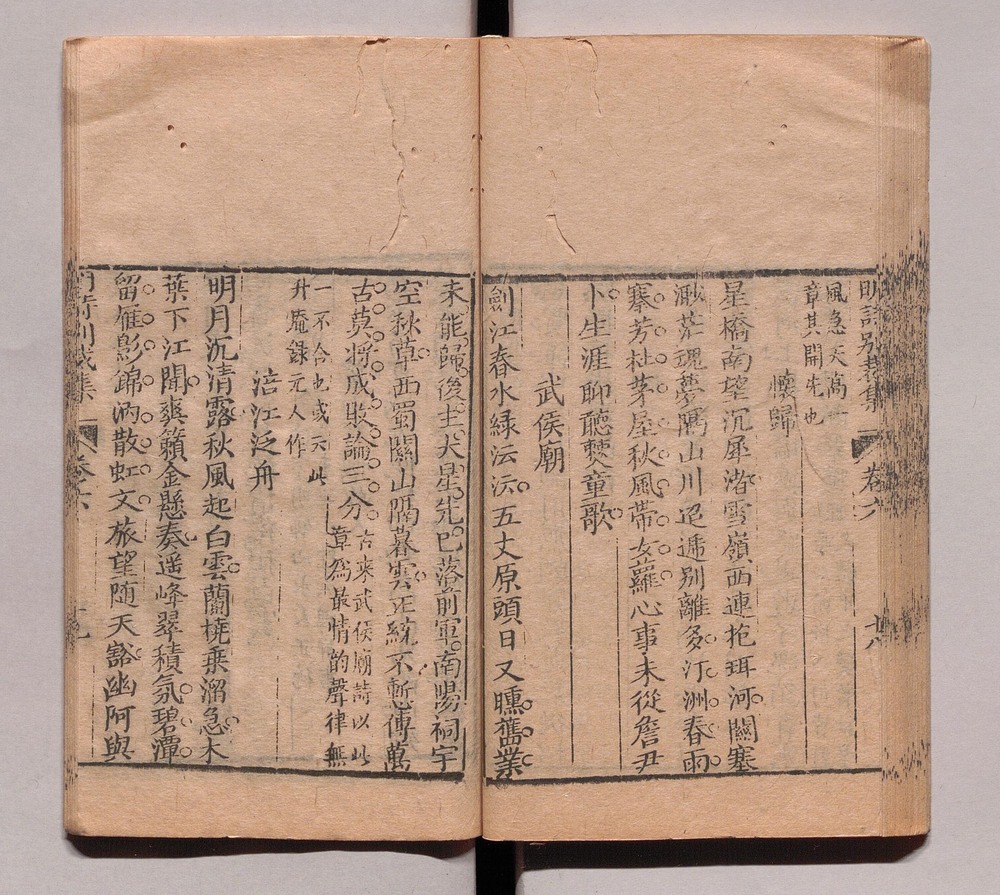 明詩別裁集 卷六 十八
風急天高一
章其開先也
懷歸
星橋南望沉犀渚雪嶺西連抱珥河關塞
渺茫魂夢隔山川迢遞別離多汀洲春雨
搴芳杜茅屋秋風帶女蘿心事未從詹尹
卜生涯聊聽㸑童歌
武侯廟
劍江春水綠沄沄五丈原頭日又曛舊業
未能歸後主大星先已落前軍南陽祠宇
空秋草西蜀關山隔暮雲正統不慙傳萬
古莫將成敗論三分
古来武侯廟詩以此
章為最情韵聲律無
一不合也或云此
升庵錄元人作
涪江泛舟
明月沉清露秋風起白雲蘭橈乘溜急木
葉下江聞爽籟金懸奏遥峰翠積氛碧潭
留雁影錦浪散虹文旅望随天豁幽阿與
明詩別裁集 卷六 十九